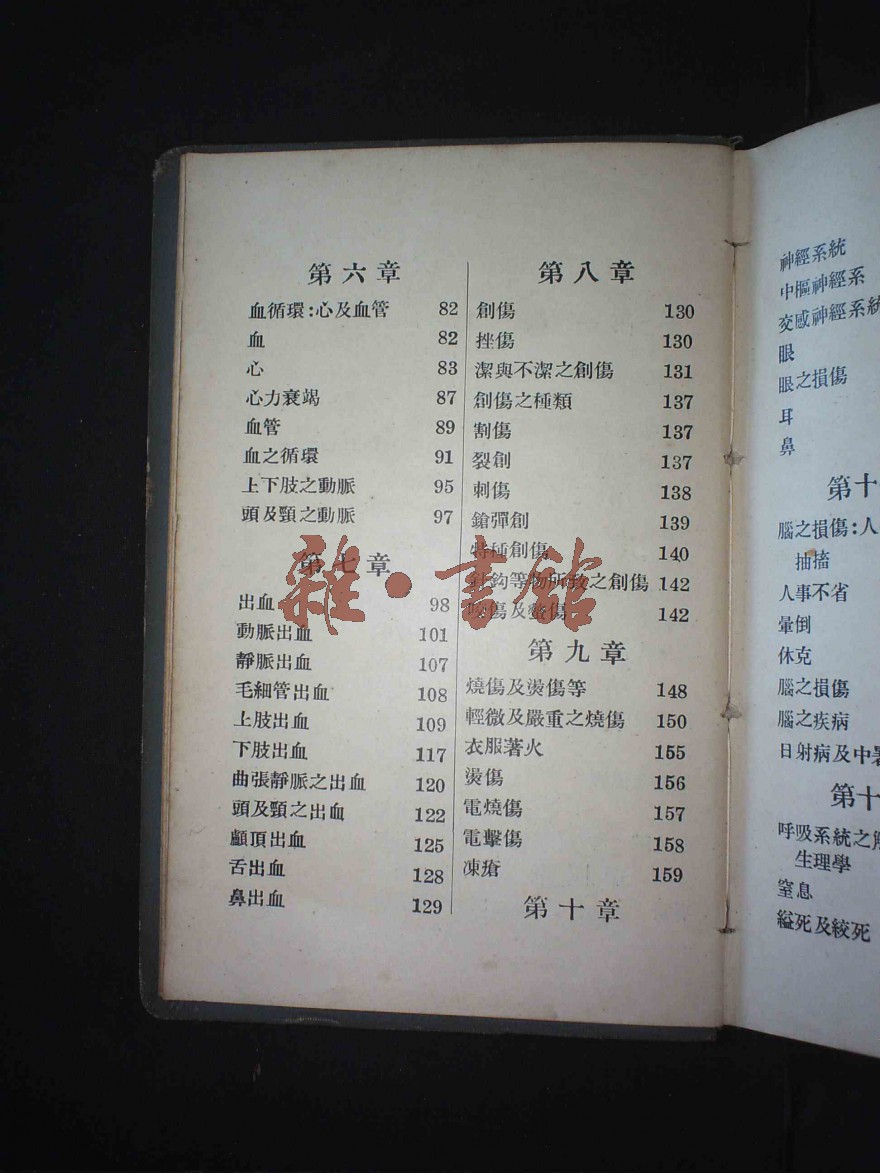 第六章
血循環：心及血管 82
血 82
心 83
心力衰竭 87
血管 89
血之循環 91
上下肢之動脈 95
頭及頸之動脈 97
第七章
出血 98
動脈出血 101
靜脈出血 107
毛細管出血 108
上肢出血 109
下肢出血 117
曲張靜脈之出血 120
頭及頸之出血 122
顱頂出血 125
舌出血 128
鼻出血 129
第八章
創傷 130
挫傷 130
潔與不潔之創傷 131
創傷之種類 137
割傷 137
裂創 137
刺傷 138
鎗彈創 139
特種創傷 140
針鈎等物所致之創傷 142
咬傷及螫傷 142
第九章
燒傷及燙傷等 148
輕微及嚴重之燒傷 150
衣服著火 155
燙傷 156
電燒傷 157
電擊傷 158
凍瘡 159
第十章
雜·書館
神經系統
中樞神經系
交感神經系統
眼
眼之損傷
耳
鼻
第十
腦之損傷：人
抽搐
人事不省
暈倒
休克
腦之損傷
腦之疾病
日射病及中暑
第十
呼吸系統之解
生理學
窒息
縊死及絞死